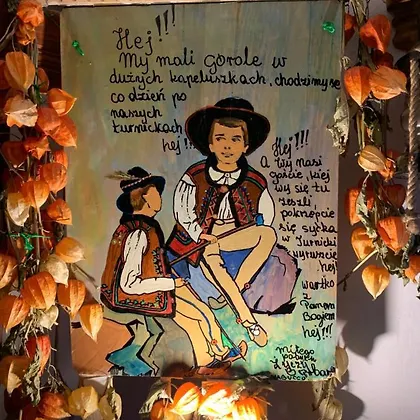 Hej!!!
My mali górole w
dużych kapeluszkach, chodzimy se
co dzień po
naszych
turnickach
hej!!!
Hej!!!
A wy nasi
goście, kiej
wy się tu
zeszli,
pokrzepcie
się sycka
w Turnicki
hej!
wartko
z
Panem
Bogiem
hej!!!
miłego
pobytu
życzy